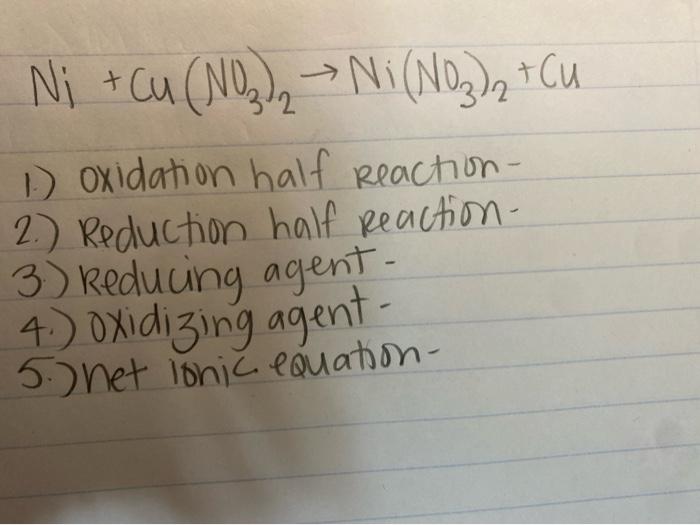 Ni + Cu(NO₃)₂ → Ni(NO₃)₂ + Cu
1.) oxidation half Reaction -
2.) Reduction half Reaction -
3.) Reducing agent -
4.) oxidizing agent -
5.) net ionic equation -